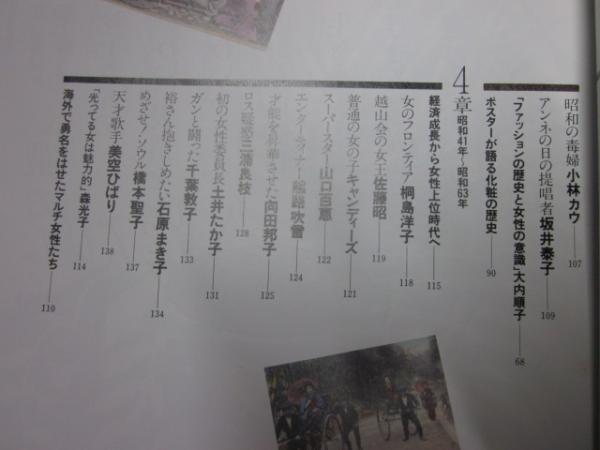 昭和の毒婦 小林カウ 107
アンネの日の提唱者 坂井泰子 109
「ファッションの歴史と女性の意識」大内順子 68
ポスターが語る化粧の歴史 90
4章 昭和41年〜昭和63年
経済成長から女性上位時代へ 115
女のフロンティア 桐島洋子 118
越山会の女王 佐藤昭 119
普通の女の子 キャンディーズ 121
スーパースター 山口百恵 122
エンターティナー 松踏吹雪 124
才能を昇華させた 向田邦子 125
ロス疑惑 三浦良枝 128
初の女性委員長 土井たか子 131
ガンと闘った 千葉敦子 133
裕さん抱きしめたい 石原まき子 134
めざせ!ソウル 橋本聖子 137
天才歌手 美空ひばり 138
「光ってる女は魅力的」森光子 114
海外で勇名をはせたマルチ女性たち 110